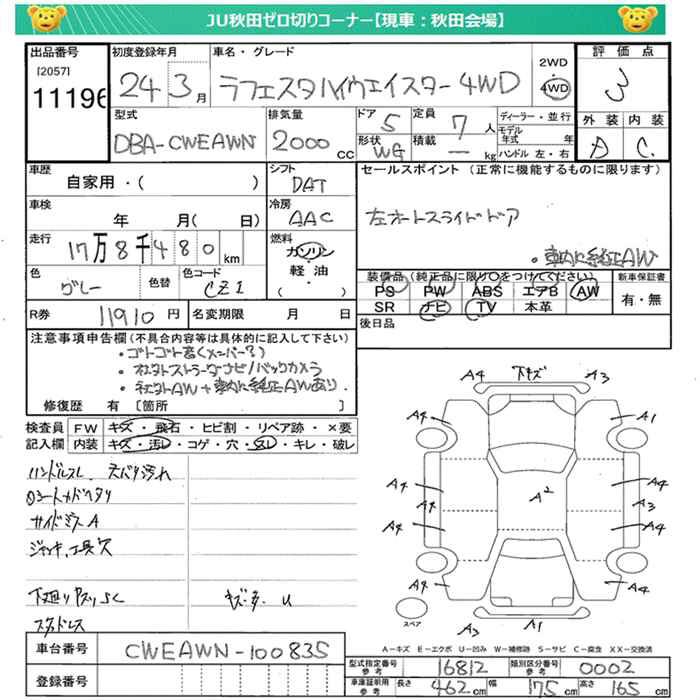 JU秋田ゼロ切りコーナー【現車：秋田会場】
出品番号
[2057]
11196
初度登録年月
24 3月
車名・グレード
ラフェスタハイウェイスター 4WD
2WD
4WD
評価点
3
外装 内装
A C
型式
DBA-CWEAWN
排気量
2000 CC
ドア
5
形状
WG
定員
7人
積載
— kg
ディーラー・並行
モデル年式 年
ハンドル 左・右
車歴
自家用・( )
シフト
DAT
車検
年 月( 日)
冷房
AAC
走行
17万8千480km
燃料
ガソリン
軽油
( ・ )
色
グレー
色替
色コード
CZ1
R券
11910円
名変期限 月 日
セールスポイント (正常に機能するものに限ります)
左オートスライドドア
・車内に純正AW
装備品(純正品に限り○をつけてください)
PS PW ABS エアB AW
SR ナビ TV 本革
新車保証書
有・無
後日品
注意事項申告欄(不具合内容等は具体的に記入して下さい)
・ゴトゴト音(メンバー?)
・社外ストラーダナビ/バックカメラ
・社外AW+車内に純正AWあり.
修復歴 有 [箇所 ]
検査員記入欄
FW キズ・飛石・ヒビ割・リペア跡・×要
内装 キズ・汚レ・コゲ・穴・スレ・キレ・破レ
ハンドルスレ 天バリ汚れ
サイドミラーA
ジャッキ、工具欠
キズ・多. U
スタッドレス
A4 下キズ A3
A4 A1
A4 A4
A2
A3
A4 A4
A4 A4
A3 A1
スペア
A－キズ E－エクボ U－凹み W－補修跡 S－サビ C－腐食 XX－交換済
車台番号
CWEAWN-100835
登録番号
型式指定番号
参考
16812
類別区分番号
参考
0002
車庫証明用
参考
長さ 462cm 幅 175cm 高さ 165cm